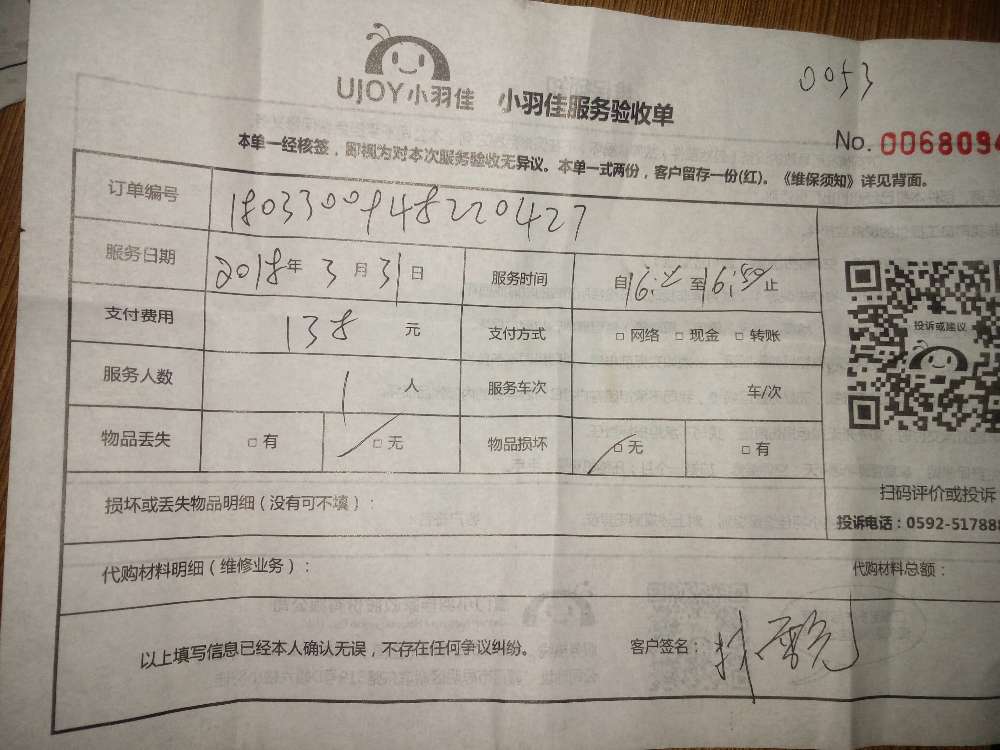 0053
UJOY小羽佳 小羽佳服务验收单
No. 0068094
本单一经核签，即视为对本次服务验收无异议。本单一式两份，客户留存一份(红)。《维保须知》详见背面。
订单编号 180330094822042​7
服务日期 2018年3月31日 服务时间 自16: 至16:50止
支付费用 138 元 支付方式 □ 网络 □ 现金 □ 转账
服务人数 1 人 服务车次 车/次
物品丢失 □ 有 □ 无 物品损坏 □ 无 □ 有
投诉或建议
扫码评价或投诉
投诉电话：0592-517888
损坏或丢失物品明细（没有可不填）：
代购材料明细（维修业务）： 代购材料总额：
以上填写信息已经本人确认无误，不存在任何争议纠纷。 客户签名：